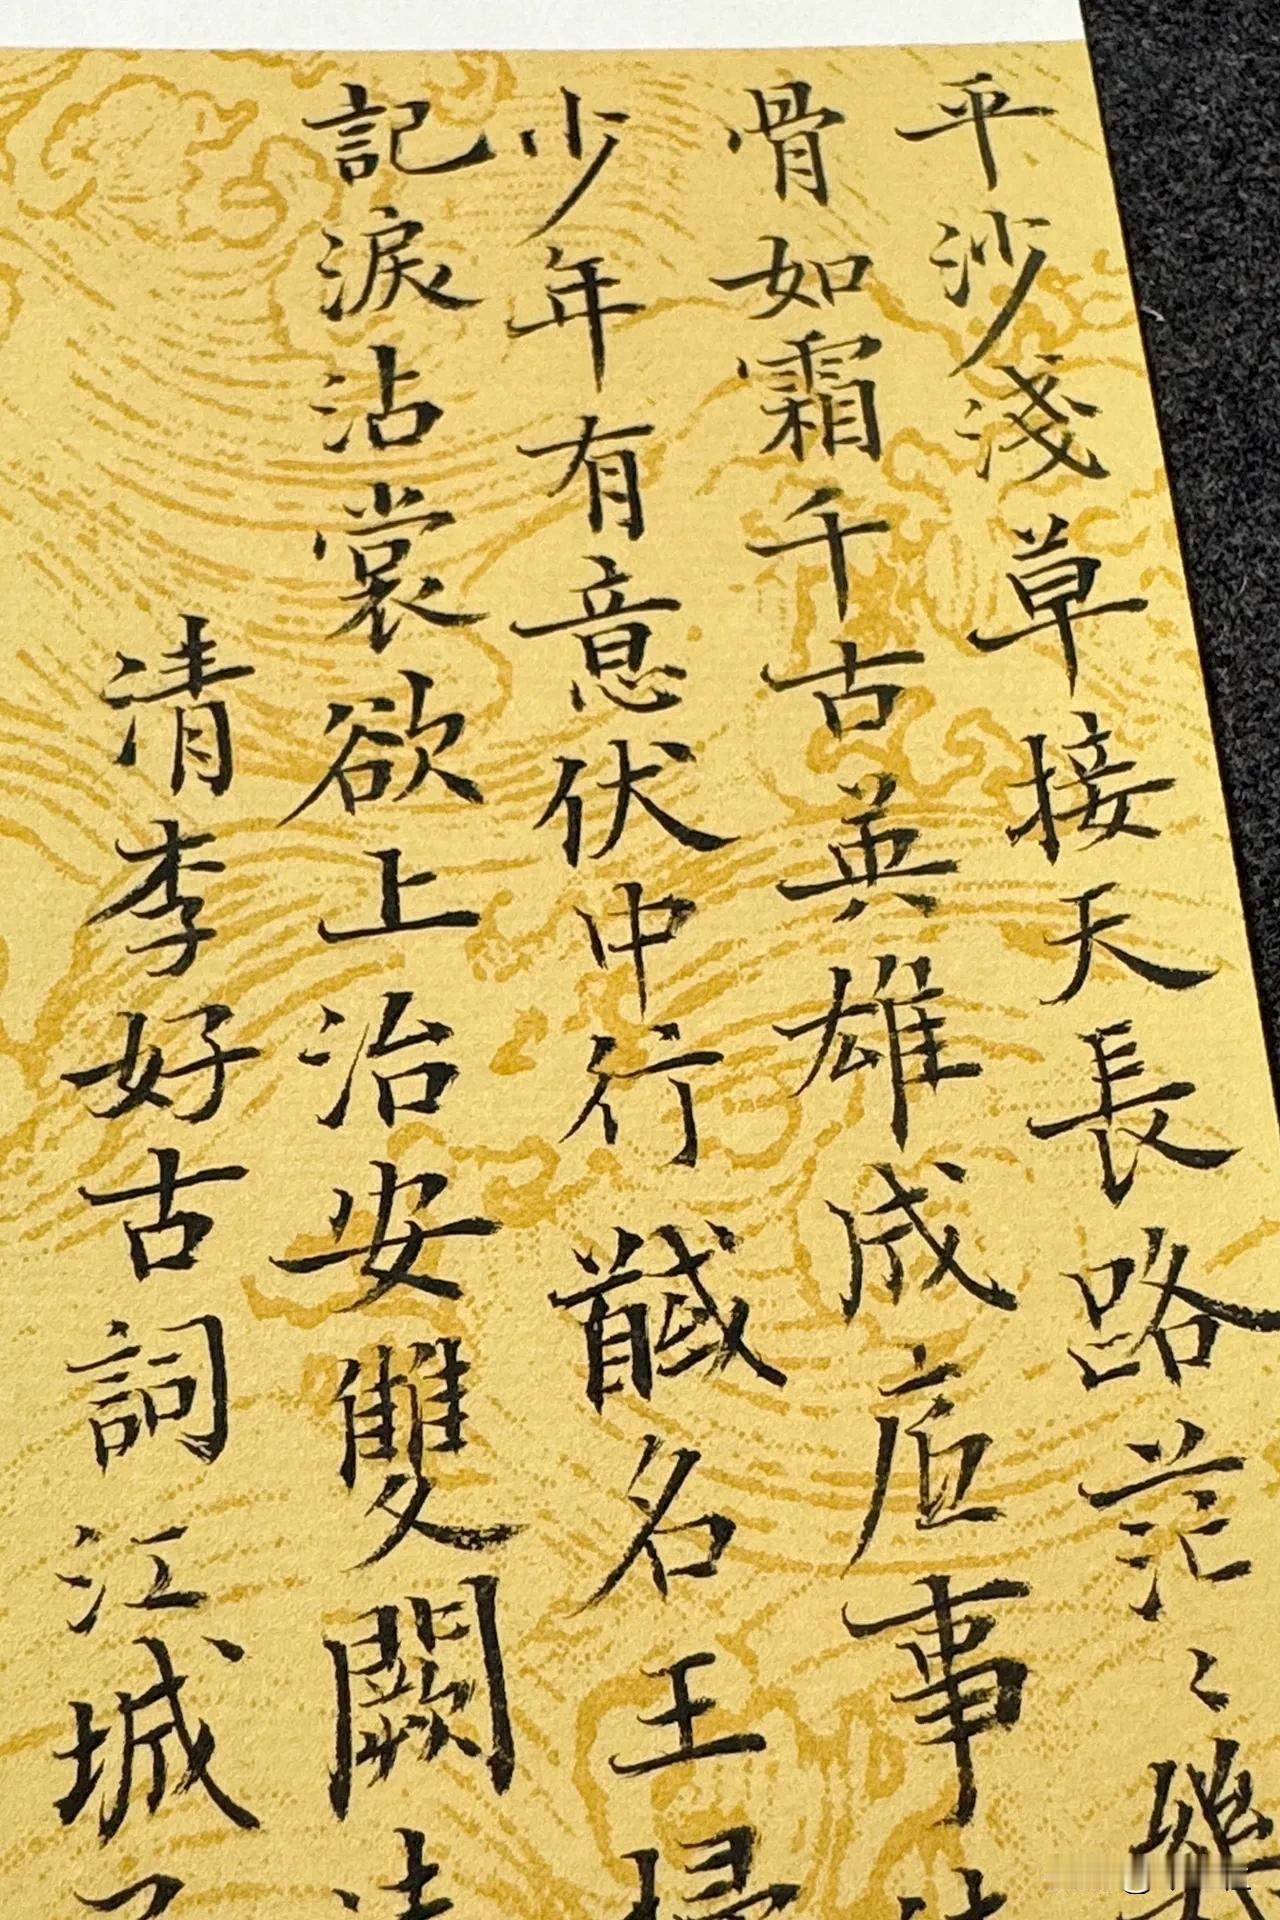 平沙淺草接天長路茫〻幾
骨如霜千古英雄成底事
少年有意伏中行馘名王掃
記淚沾裳欲上治安雙闕
清李好古詞江城子